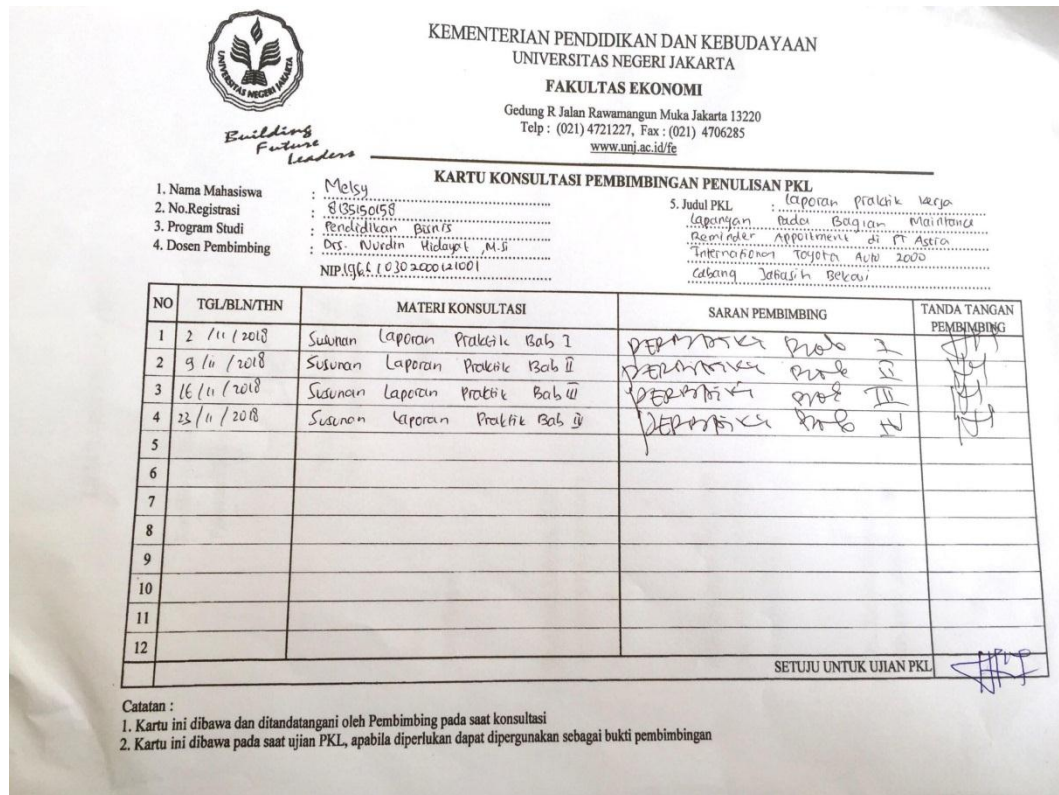 UNIVERSITAS NEGERI JAKARTA
Building
Future
Leaders
KEMENTERIAN PENDIDIKAN DAN KEBUDAYAAN
UNIVERSITAS NEGERI JAKARTA
FAKULTAS EKONOMI
Gedung R Jalan Rawamangun Muka Jakarta 13220
Telp : (021) 4721227, Fax : (021) 4706285
www.unj.ac.id/fe
KARTU KONSULTASI PEMBIMBINGAN PENULISAN PKL
1. Nama Mahasiswa : Melsy
2. No.Registrasi : 8135150158
3. Program Studi : Pendidikan Bisnis
4. Dosen Pembimbing : Drs. Nurdin Hidayat, M.Si
NIP.
5. Judul PKL : Laporan praktik kerja
Lapangan Pada Bagian Maintance
Reminder Appoitment di PT Astra
International Toyota Auto 2000
Cabang Jatiasih Bekasi
NO TGL/BLN/THN MATERI KONSULTASI SARAN PEMBIMBING TANDA TANGAN PEMBIMBING
1 2 /11 / 2018 Susunan Laporan Praktik Bab I I
2 9 /11 / 2018 Susunan Laporan Praktik Bab II II
3 16 / 11 / 2018 Susunan Laporan Praktik Bab III III
4 23 / 11 / 2018 Susunan Laporan Praktik Bab IV IV
5
6
7
8
9
10
11
12
SETUJU UNTUK UJIAN PKL
Catatan :
1. Kartu ini dibawa dan ditandatangani oleh Pembimbing pada saat konsultasi
2. Kartu ini dibawa pada saat ujian PKL, apabila diperlukan dapat dipergunakan sebagai bukti pembimbingan